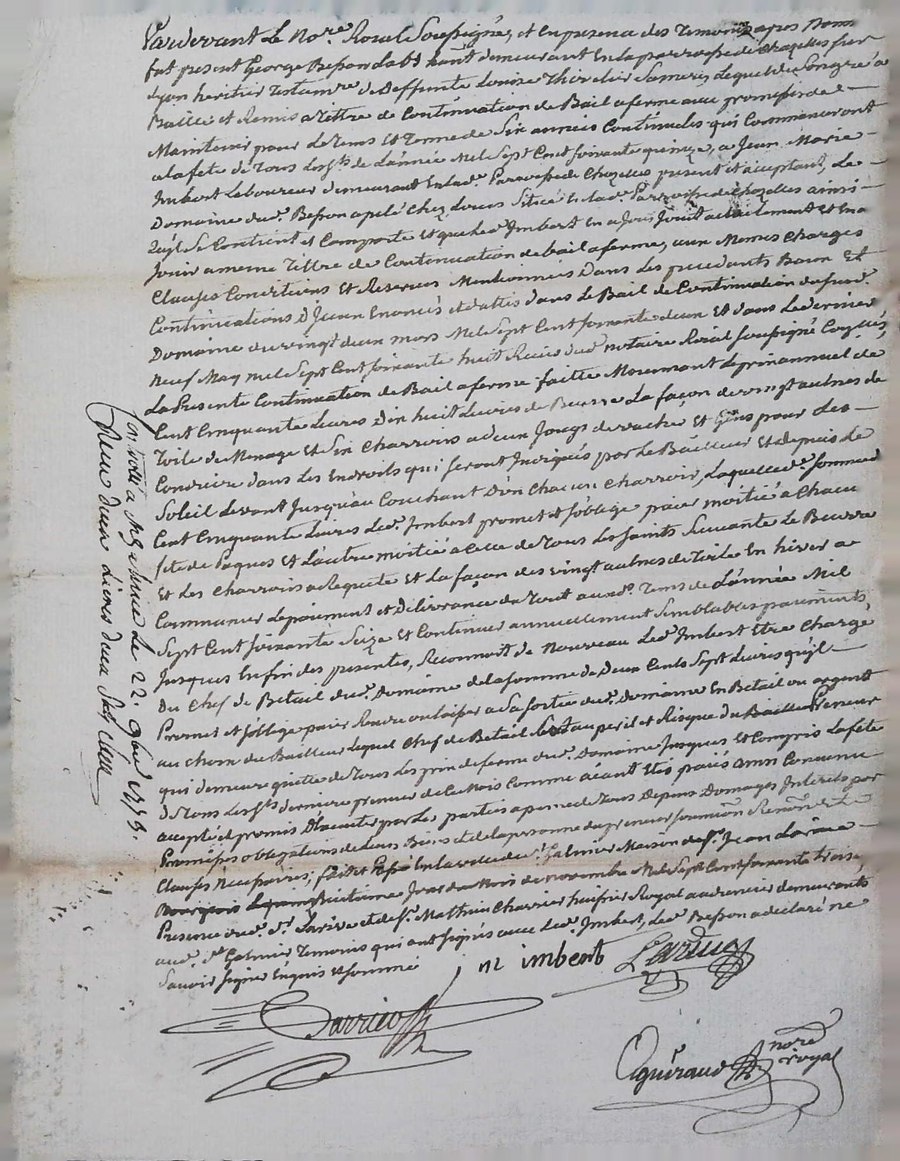 Pardevant Le Nore. Royal Soussigné, et en presence des Temoins apres Nommés
fut present George Besson habt. demeurant En la parroisse de Chazelles sur
Lyon heritier Testamre. de Deffunte Louise Lequel de Son gré a
Baillé et Remis a tittre de Continuation de Bail a ferme avec promesse de
Maintenir pour Le Tems et Terme de Six années Continueles qui Commenceront
a la fete de Tous Les Sts. de L'année Mil Sept Cent soixante quinze, a Jean Marie
Imbert Laboureur demeurant En lad. Parroisse de Chazelles present et aceptant, Le
Domaine dud. Besson apelé chez Situé En lad. Parroisse de Chazelles ainsi
qu'il Se Contient et Comporte Et que Led. Imbert En a Joui Jouit actuelement Et En a
Jouir a meme Tittre de Continuation de bail a ferme, aux Memes Charges
Clauses Conditions Et Reserves Mentionnees Dans Les precedants Baux Et
Continuations D'Iceux Enoncés et dattés dans Le Bail de Continuation dud.
Domaine du vingt deux mars Mil Sept Cent soixante deux Et dans Le dernier
neuf May mil Sept Cent soixante huit Recus dud. notaire Royal soussigné
La Presente Continuation de Bail a ferme faitte Moyenant Le prix annuel de
Cent Cinquante Livres Dix huit Livres de Beurre La façon de vingt aulnes de
Toile de Menage Et Six Charrois a deux Jougs de vache Et Gens pour Les
Conduire dans Les Endroits qui seront Indiqués par Le Bailleur Et depuis Le
Soleil Levant Jusqu'au Couchant D'un Chacun Charroir, Laquelle de. somme de
Cent Cinquante Livres Led. Imbert promet et s'oblige paier moitié a Chacune
fete de Paques Et L'autre moitié a Celle de Tous Les saints Suivante Le Beurre
Et Les Charrois a Requete Et La façon des vingt aulnes de Toile En hiver a
Commancer Le paiement et Délivrance du Tout auxd. Tems de L'année Mil
Sept Cent soixante Seize Et Continuer annuellement Semblables paiements
Jusques En fin des presentes, Reconnoit de Nouveau Led. Imbert Etre Chargé
Du Chef de Betail dud. Domaine de La somme de deux Cents Sept Livres qu'il
Promet et s'oblige paier Rendre ou laisser a Sa sortie dud. Domaine En Betail ou argent
au choix du Bailleur Lequel Chef de Betail Est au peril et Risque du Preneur
qui demeure quitte de Tous Les prix de ferme dud. Domaine Jusques Et Compris La fete
de Tous Les Sts. derniere premier de Ce Mois Comme aiant Etés païés ainsi Convenu
accepté et promis D'Executer par Les parties a peine de Tous Depens Domages Interets par
Promesses obligations de Leurs Biens et de La personne du preneur soumions Renons. Et
Clauses Necessaires; fait et Passé En La ville de St. Galmier Maison de Sr. Jean Larive
huitieme Jour du Mois de novembre Mil Sept Cent soixante treize
Presence dud. Sr. Larive et de Sr. Mathieu Charrier huissier Royal audiencier demeurants
aud. St. Galmier Temoins qui ont signés avec Led. Imbert, Led. Besson a déclaré ne
Savoir signer Enquis et sommé
m imbert
nore.
royal
Controllé a St. Galmier Le 22. 9bre 1773.
Reçu deux Livres deux